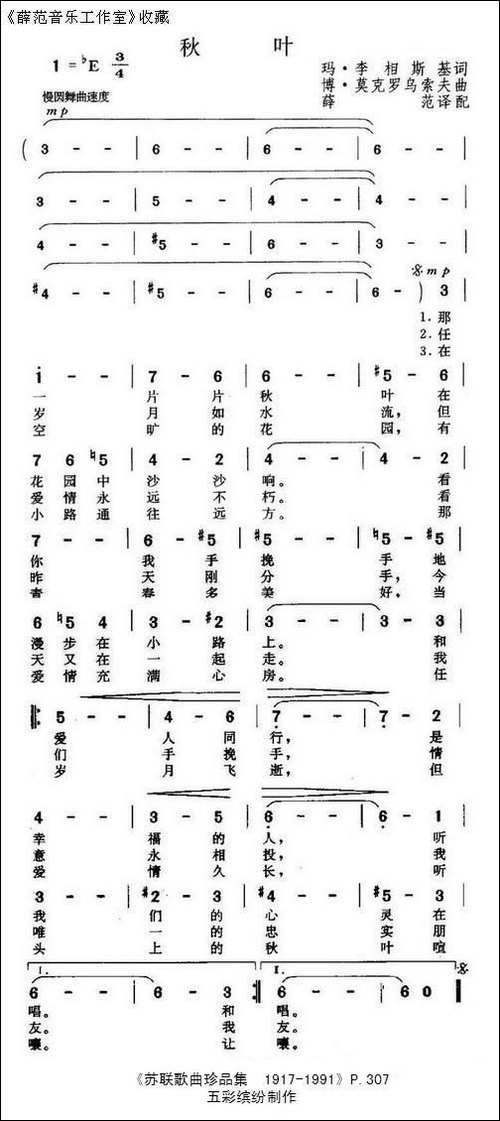 《薛范音乐工作室》收藏
秋 叶
1 = ♭E 3/4
玛·李相斯基词
博·莫克罗乌索夫曲
薛 范译配
慢圆舞曲速度
mp
( 3 - - | 6 - - | 6 - - | 6 - - |
3 - - | 5 - - | 4 - - | 4 - - |
4 - - | #5 - - | 6 - - | 3 - - |
#4 - - | #5 - - | 6 - - | 6 - ) 3 |
mp
1. 那
2. 任
3. 在
1 - - | 7 - 6 | 6 - - | #5 - 6 |
一 片 片 秋 叶 在
岁 月 如 水 流, 但
空 旷 的 花 园, 有
7 6 ♮5 | 4 - 2 | 4 - - | 4 - 2 |
花 园 中 沙 沙 响。 看
爱 情 永 远 不 朽。 看
小 路 通 往 远 方。 那
7 - - | 6 - #5 | #5 - - | ♮5 - #5 |
你 我 手 挽 手 地
昨 天 刚 分 手, 今
青 春 多 美 好。 当
6 ♮5 4 | 3 - #2 | 3 - - | 3 - 3 |
漫 步 在 小 路 上。 和
天 又 在 一 起 走。 我
爱 情 充 满 心 房。 任
5 - - | 4 - 6 | 7 - - | 7 - 2 |
爱 人 同 行, 是
们 手 挽 手, 情
岁 月 飞 逝, 但
4 - - | 3 - 5 | 6 - - | 6 - 1 |
幸 福 的 人, 听
意 永 相 投, 我
爱 情 久 长, 听
3 - - | #2 - 3 | #4 - - | #5 - 3 |
我 们 的 心 灵 在
唯 一 的 忠 实 朋
头 上 的 秋 叶 喧
1. 2.
6 - - | 6 - 3 :| 6 - - | 6 0 ||
唱。 和 唱。
友。 我 友。
嚷。 让 嚷。
《苏联歌曲珍品集 1917-1991》P.307
五彩缤纷制作